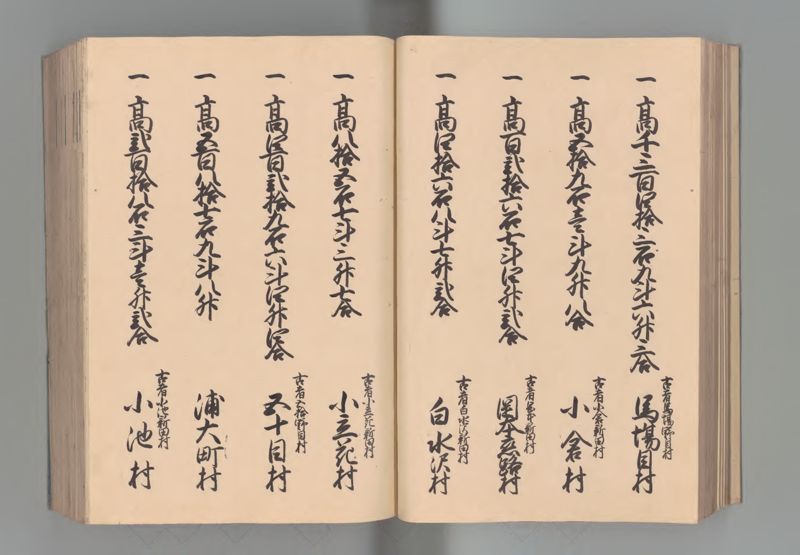 一 高千三百四拾三石九斗六升三合
古者馬場野目村
馬場目村
一 高五拾九石壱斗九升八合
古者小倉新田村
小倉村
一 高百弐拾六石七斗四升弐合
村
一 高四拾六石八斗七升弐合
古者白水沢新田村
白水沢村
一 高八拾五石七斗三升七合
古者小立花新田村
小立花村
一 高四百弐拾九石六斗四升四合
古者五拾野目村
五十目村
一 高五百八拾七石九斗八升
浦大町村
一 高弐百拾八石三斗壱升弐合
古者小池新田村
小池村